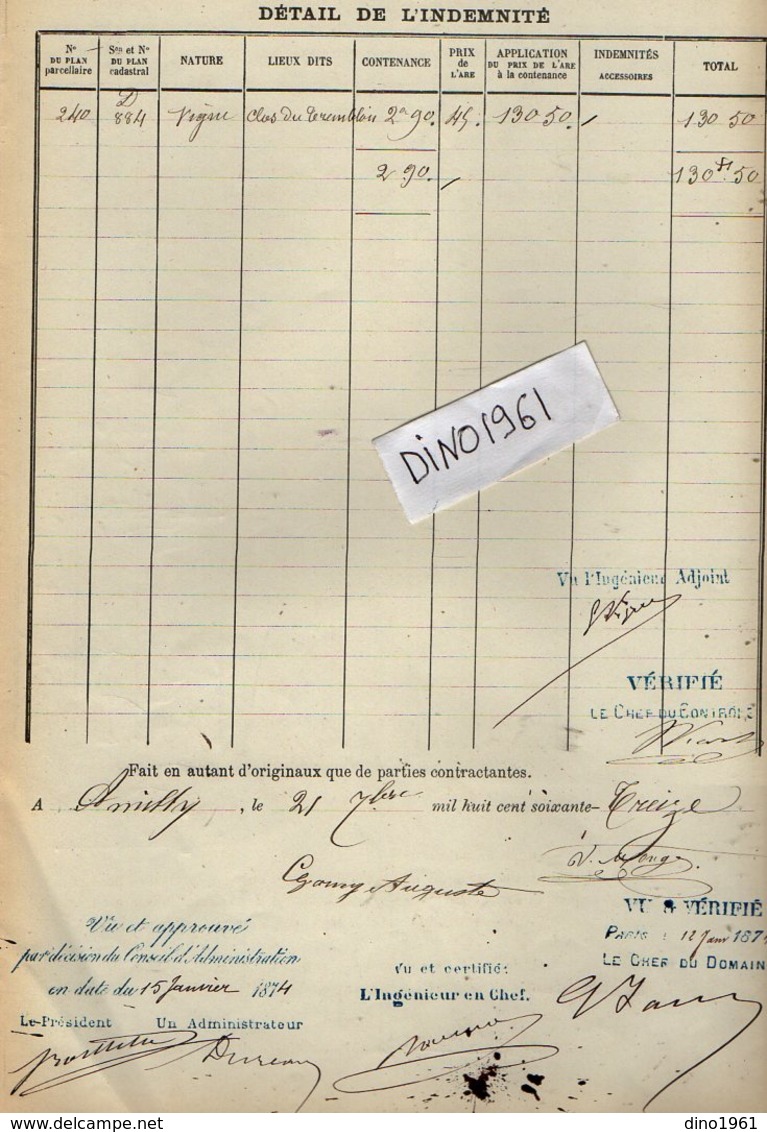 DÉTAIL DE L'INDEMNITÉ
N° DU PLAN parcellaire | Son et N° DU PLAN cadastral | NATURE | LIEUX DITS | CONTENANCE | PRIX de L'ARE | APPLICATION DU PRIX DE L'ARE à la contenance | INDEMNITÉS ACCESSOIRES | TOTAL
240 | D 884 | Vigne | Clos du Tremblay 2a 90. | 45. | 130 50. | 130 50
2 90. | 130 f. 50
DINO1961
Vu l'Ingénieur Adjoint
VÉRIFIÉ
LE CHEF DU CONTRÔLE
Fait en autant d'originaux que de parties contractantes.
A Amilly, le 21 7bre mil huit cent soixante- Treize
Auguste
VU & VÉRIFIÉ
PARIS : 12 Janv 187
LE CHEF DU DOMAIN
Vu et approuvé
par décision du Conseil d'Administration
en date du 15 Janvier 1874
Vu et certifié:
L'Ingénieur en Chef.
Le Président Un Administrateur
dino1961
www.delcampe.net